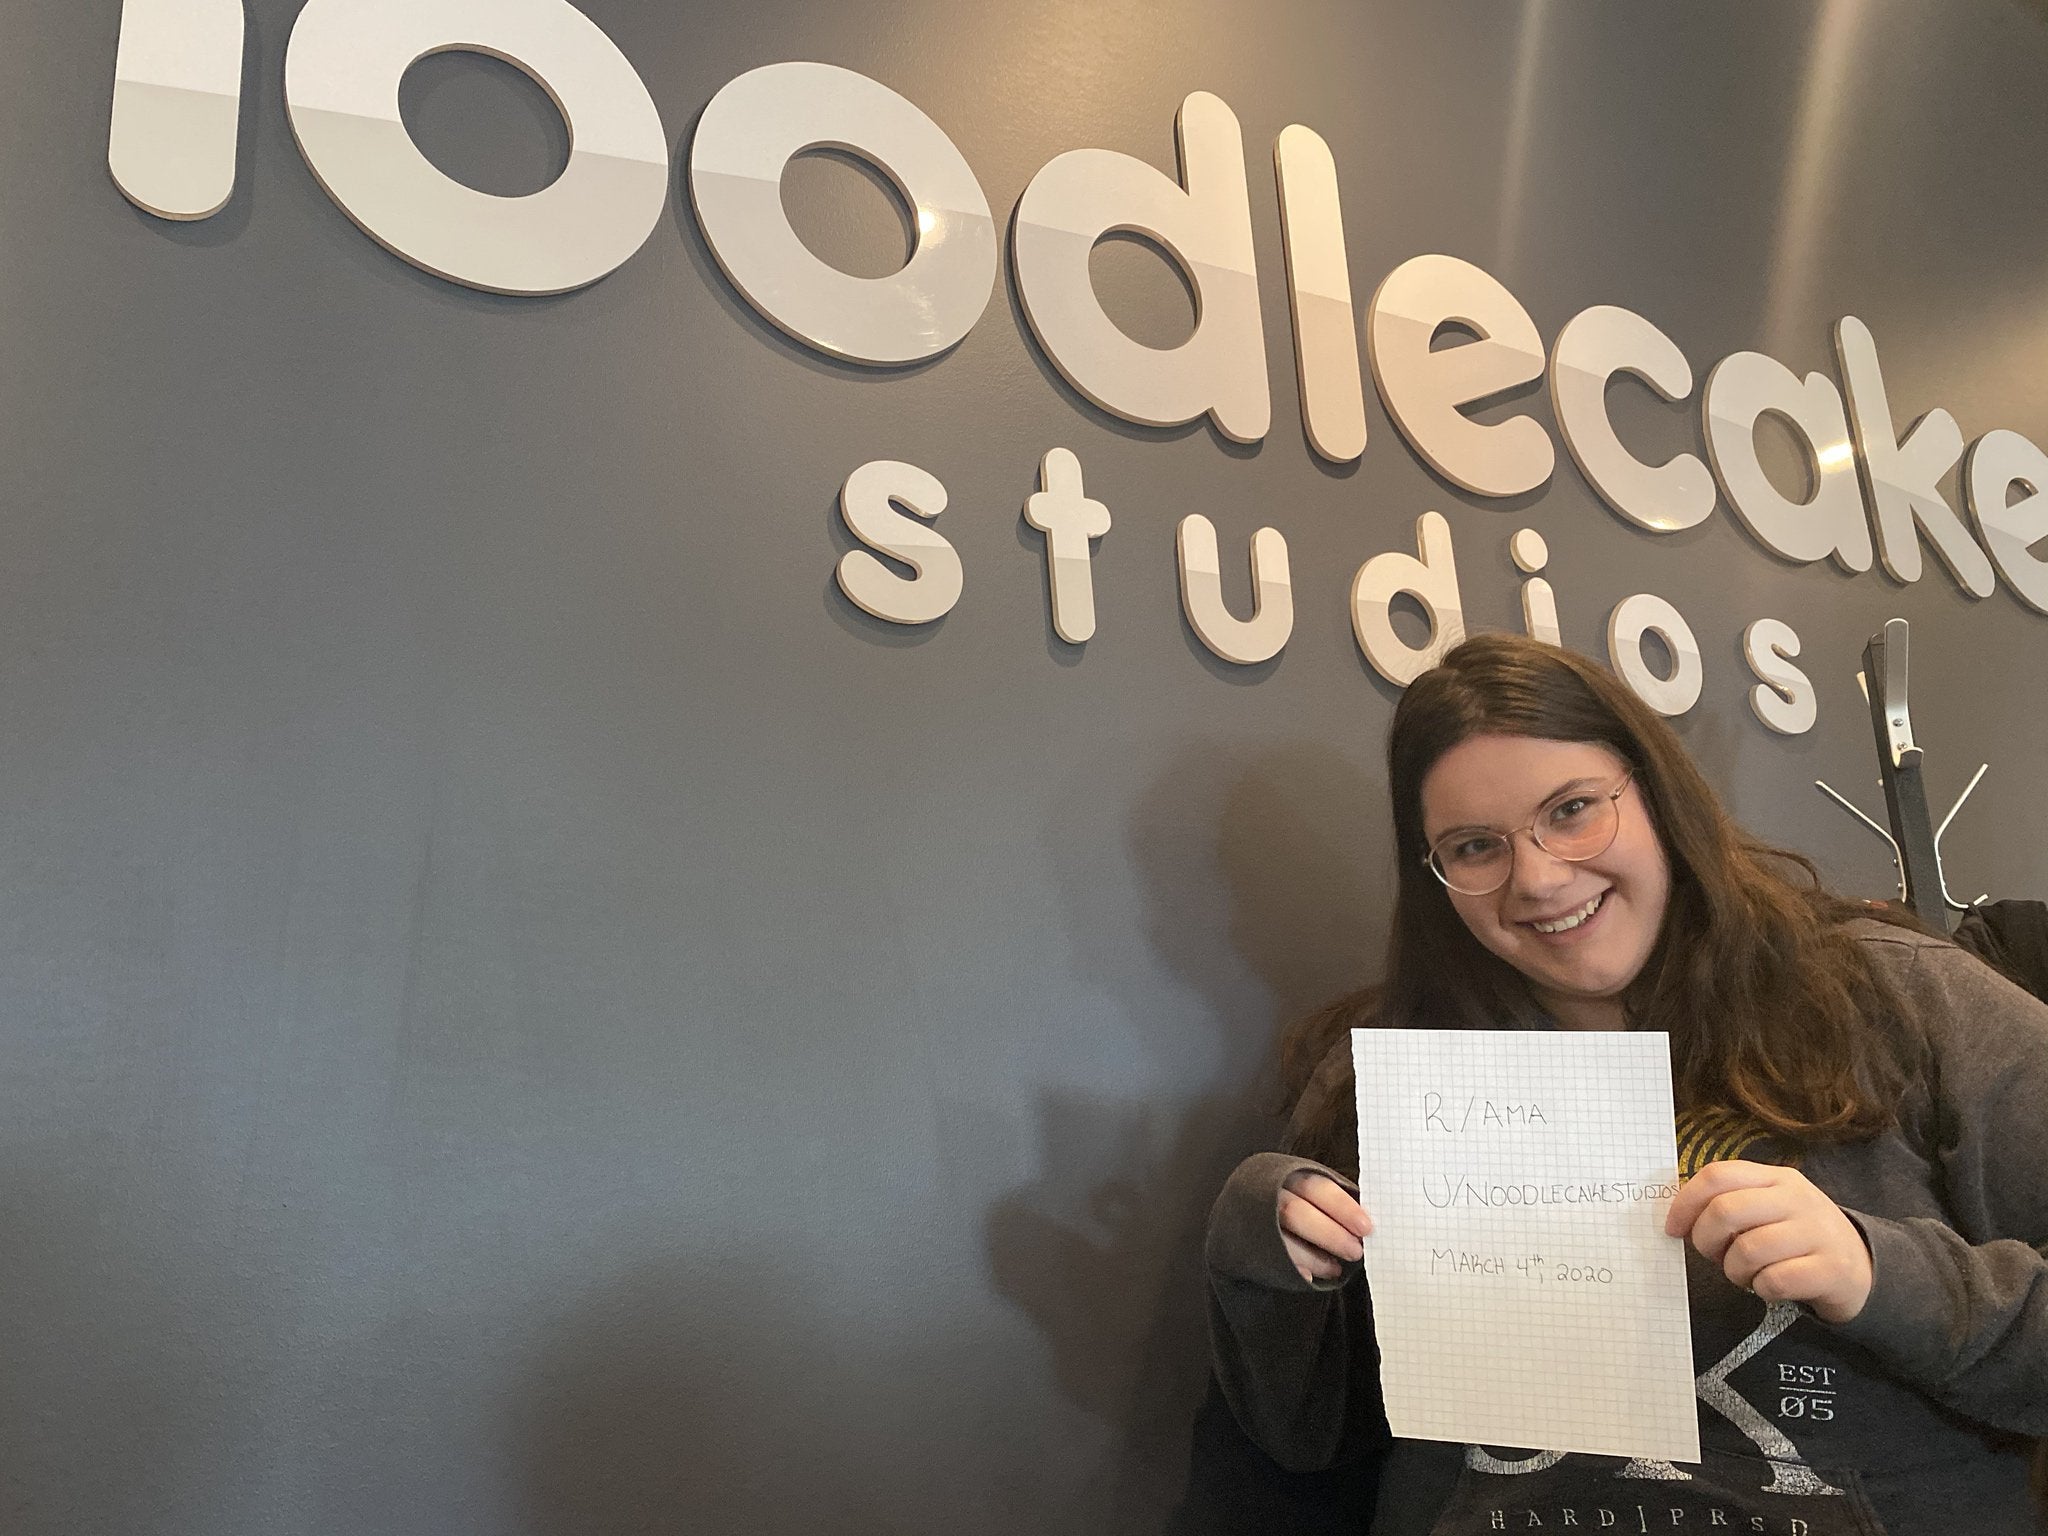 noodlecake
studios
R/AMA
U/NOODLECAKESTUDIOS
MARCH 4th, 2020
EST
Ø5
HARD|PRSD